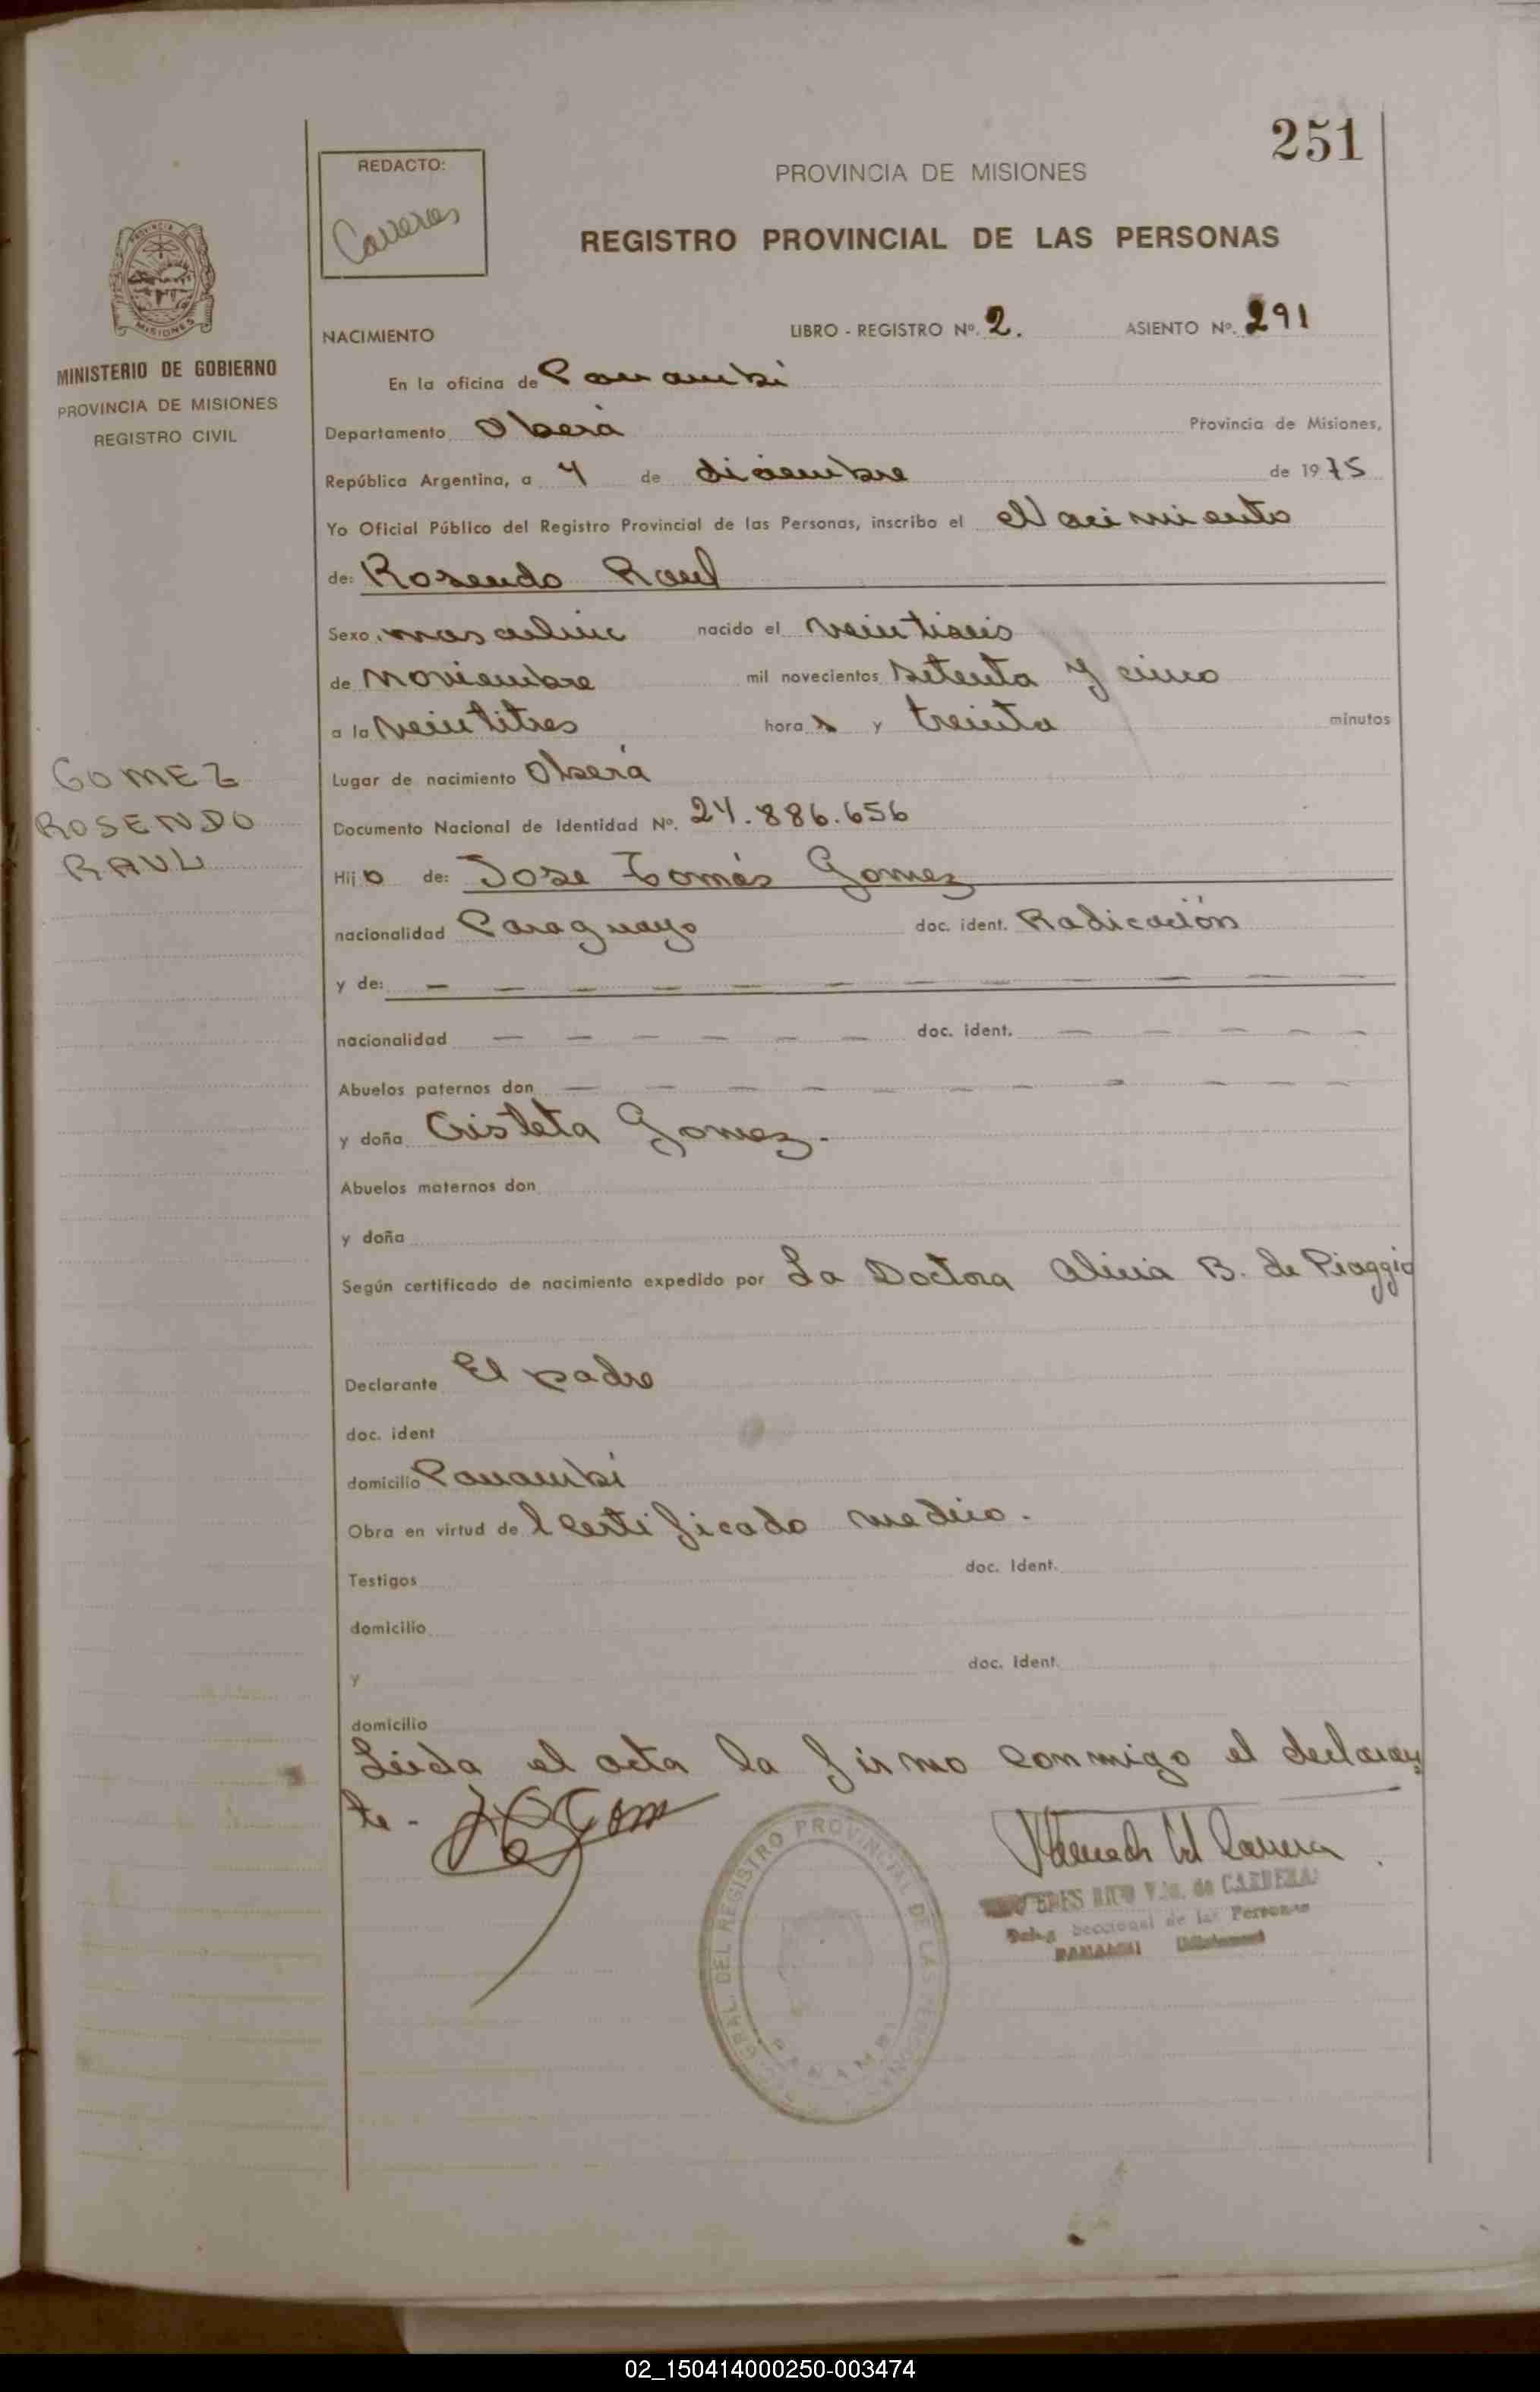 251
REDACTO:
PROVINCIA DE MISIONES
REGISTRO PROVINCIAL DE LAS PERSONAS
MISIONES
MINISTERIO DE GOBIERNO
PROVINCIA DE MISIONES
REGISTRO CIVIL
NACIMIENTO LIBRO - REGISTRO Nº. 2. ASIENTO Nº. 291
En la oficina de Panambi
Departamento Oberá Provincia de Misiones,
República Argentina, a 4 de diciembre de 1975
Yo Oficial Público del Registro Provincial de las Personas, inscribo el Nacimiento
de: Rosendo Raul
Sexo masculino nacido el veintiseis
de Noviembre mil novecientos setenta y cinco
a la veintitres hora s y treinta minutos
Lugar de nacimiento Oberá
GOMEZ
ROSENDO
RAUL
Documento Nacional de Identidad Nº. 24.886.656
Hij o de: Jose Tomás Gomez
nacionalidad Paraguayo doc. ident. Radicación
y de: — — — — — — — — — — — —
nacionalidad — — — — — — doc. ident. — — — — —
Abuelos paternos don — — — — — — — — — — —
y doña Gomez.
Abuelos maternos don
y doña
Según certificado de nacimiento expedido por La Doctora Alicia B. de Piaggio
Declarante El padre
doc. ident
domicilio Panambi
Obra en virtud de l Certificado medico.
Testigos doc. Ident.
domicilio
y doc. Ident.
domicilio
Leida el acta la firmo conmigo el declaran
te.
REG. GRAL. DEL REGISTRO PROVINCIAL DE LAS PERSONAS
PANAMBI
RICO Vda. de CARRERA
Deleg. Seccional de las Personas
PANAMBI (Misiones)
02_150414000250-003474